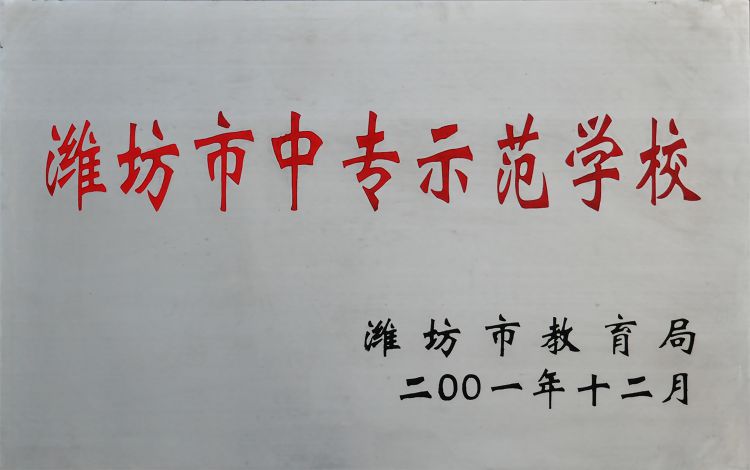 潍坊市中专示范学校
潍坊市教育局
二00一年十二月